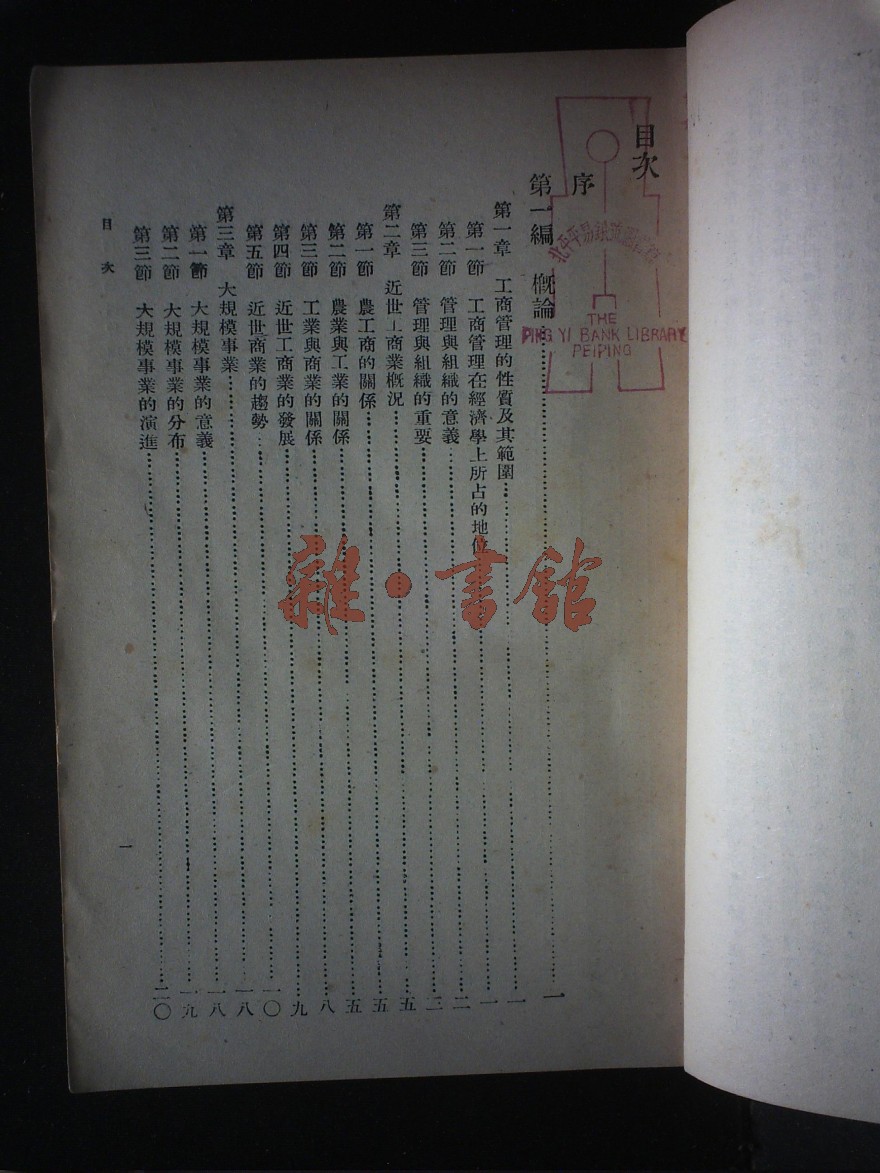 目次
序
第一編 概論……一
第一章 工商管理的性質及其範圍……一
第一節 工商管理在經濟學上所占的地位……一
第二節 管理與組織的意義……二
第三節 管理與組織的重要……三
第二章 近世工商業概況……五
第一節 農工商的關係……五
第二節 農業與工業的關係……五
第三節 工業與商業的關係……八
第四節 近世工商業的發展……九
第五節 近世商業的趨勢……一〇
第三章 大規模事業……一八
第一節 大規模事業的意義……一八
第二節 大規模事業的分布……一九
第三節 大規模事業的演進……二〇
目次
一
THE
PING YI BANK LIBRARY
PEIPING
雜·書館